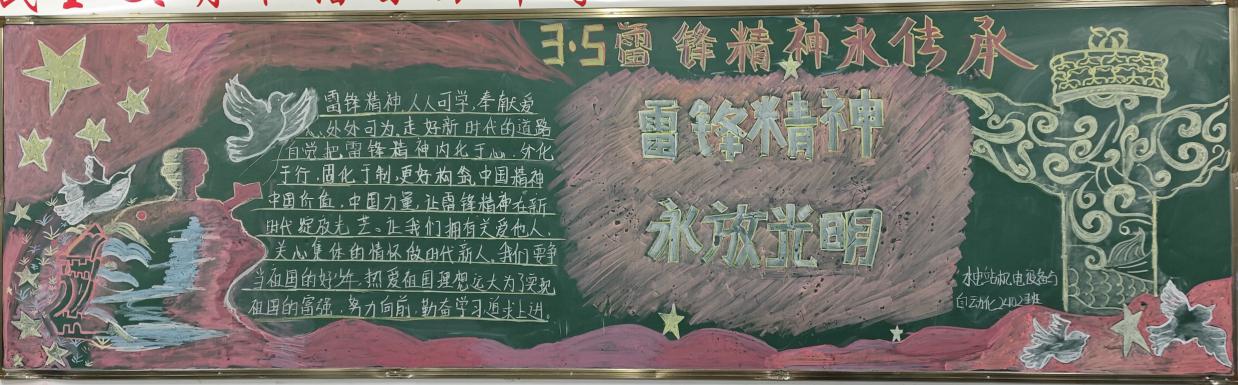 3·5雷锋精神永传承
雷锋精神,人人可学,奉献爱
心,处处可为,走好新时代的道路
自觉把雷锋精神内化于心,外化
于行,固化于制,更好构筑中国精神
中国价值,中国力量,让雷锋精神在新
时代绽放光芒。让我们拥有关爱他人,
关心集体的情怀做时代新人,我们要争
当祖国的好少年,热爱祖国理想远大为了实现
祖国的富强,努力向前,勤奋学习追求上进。
雷锋精神
永放光明
水电站机电设备与
自动化2402班